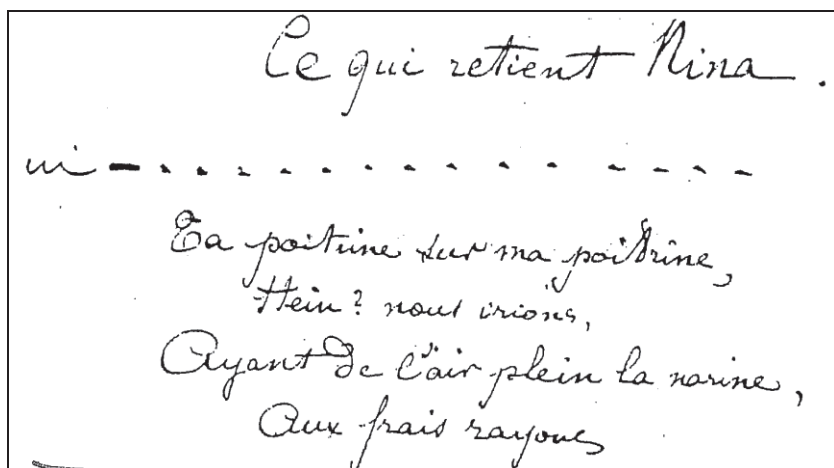 Ce qui retient Nina.
ui — . . . . . . . . . . . . . . .
Ta poitrine sur ma poitrine,
Hein? nous irions,
Ayant de l'air plein la narine,
Aux frais rayons